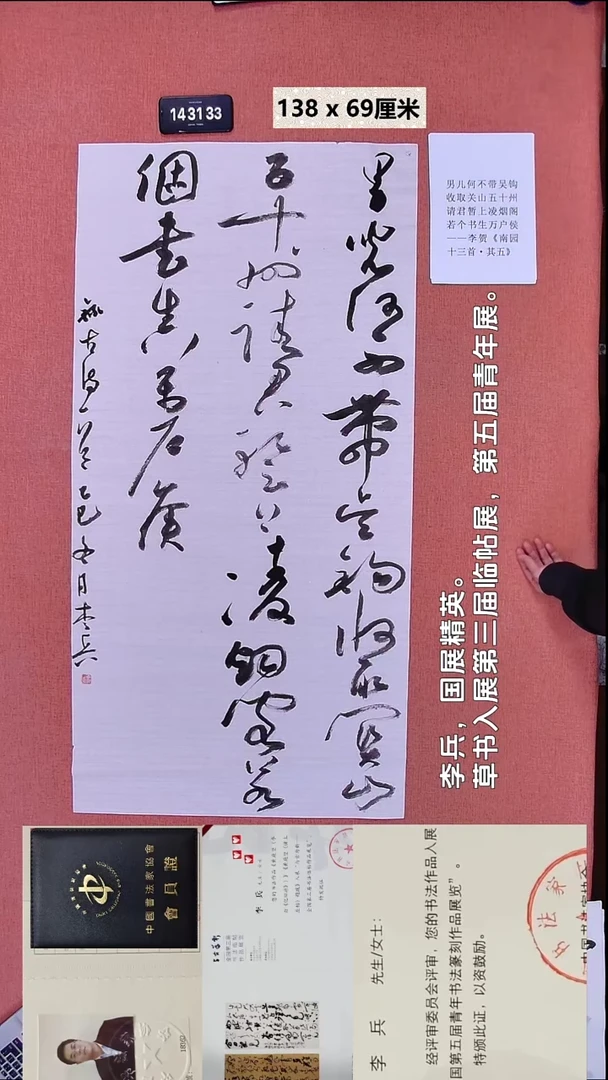 143133
138 x 69厘米
男儿何不带吴钩
收取关山五十州
请君暂上凌烟阁
若个书生万户侯
——李贺《南园
十三首·其五》
男兒何不帶吳鉤收取關山
五十州請君暫上凌烟閣若
個書生萬户侯
古詩一首乙巳 月李兵
李兵，国展精英。
草书入展第三届临帖展，第五届青年展。
中國書法家協會
會員證
李 兵
李 兵 先生/女士：
经评审委员会评审，您的书法作品入展
国第五届青年书法篆刻作品展览”。
特颁此证，以资鼓励。